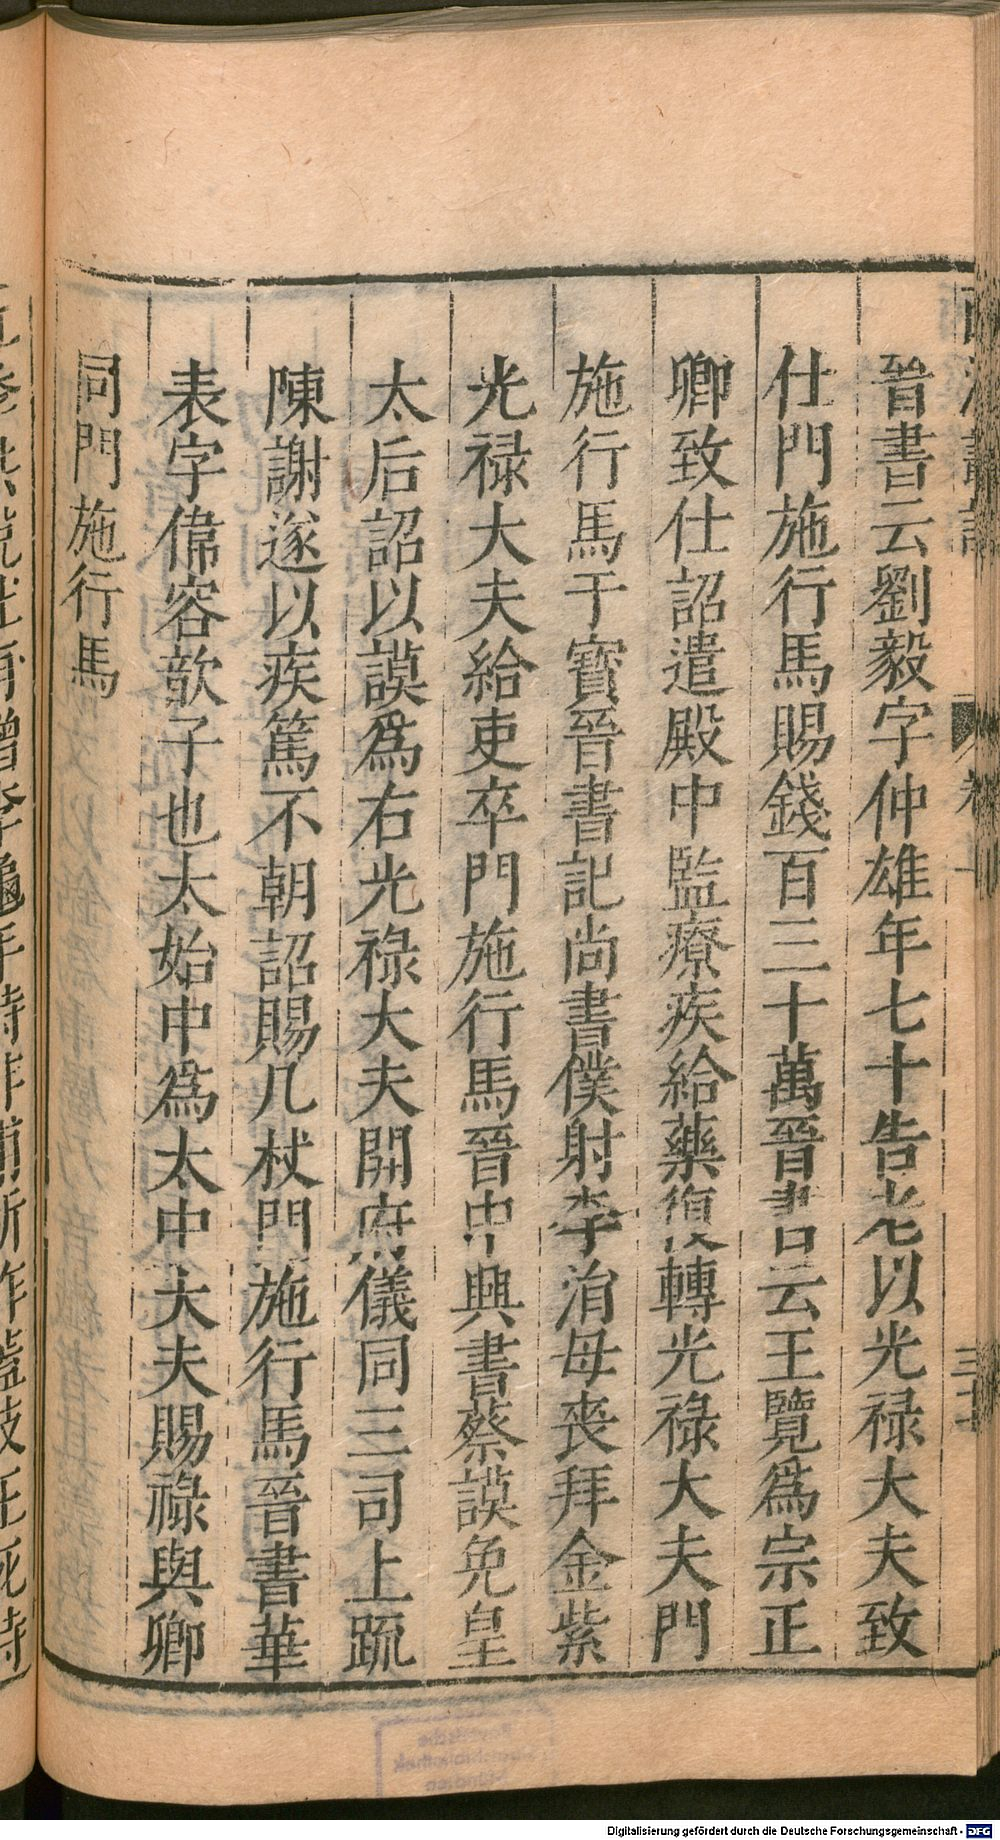 晉書云劉毅字仲雄年七十告老以光禄大夫致
仕門施行馬賜錢百三十萬晉書云王覽爲宗正
卿致仕詔遣殿中監療疾給藥復轉光禄大夫門
施行馬于寶晉書記尚書僕射李㳙母丧拜金紫
光禄大夫給吏卒門施行馬晉中興書蔡謨免皇
太后詔以謨爲右光禄大夫開府儀同三司上疏
陳謝遂以疾篤不朝詔賜几杖門施行馬晉書華
表字偉容歆子也太始中爲太中大夫賜禄與卿
同門施行馬
Digitalisierung gefördert durch die Deutsche Forschungsgemeinschaft - DFG